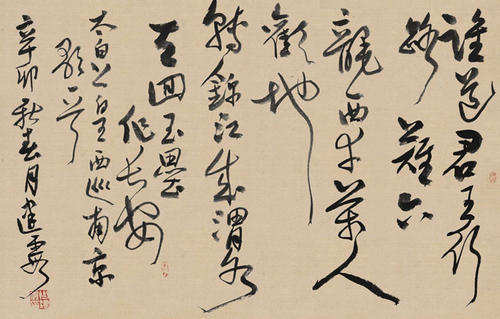 誰道君王行
路難六
龍西幸萬人
歡地
轉錦江成渭水
天回玉壘
作長安
太白上皇西巡南京
歌一首
辛卯秋月